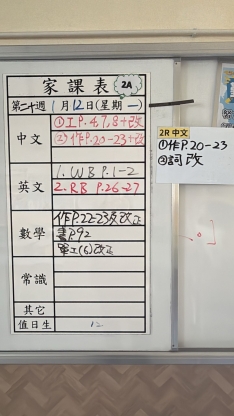 家課表 2A
第二十週 1月12日(星期一)
中文
①工P.4,7,8+改
②作P.20-23+改
英文
1. WB P.1-2
2. RB P.26-27
數學
作P.22-23及改正
書P.92
單工(6)改正
常識
其它
值日生 12
2R 中文
①作P.20-23
②詞改